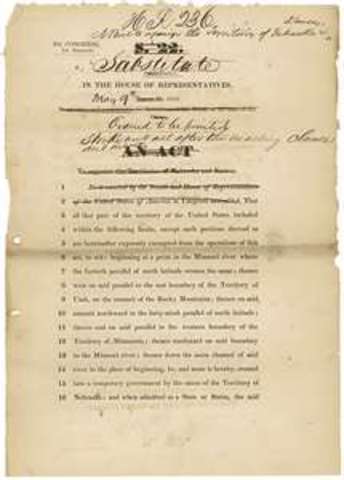 H. R. 236.
A Bill to organize the Territory of Nebraska &c.
33D CONGRESS,
1st Session.
S. 22.
Substitute
IN THE HOUSE OF REPRESENTATIVES.
May 9th
Ordered to be printed
Strike out all after the enacting clause
and
AN ACT
To organize the Territories of Nebraska and Kansas.
1 Be it enacted by the Senate and House of Representatives
2 of the United States of America in Congress assembled, That
3 all that part of the territory of the United States included
4 within the following limits, except such portions thereof as
5 are hereinafter expressly exempted from the operations of this
6 act, to wit: beginning at a point in the Missouri river where
7 the fortieth parallel of north latitude crosses the same; thence
8 west on said parallel to the east boundary of the Territory of
9 Utah, on the summit of the Rocky Mountains; thence on said
10 summit northward to the forty-ninth parallel of north latitude;
11 thence east on said parallel to the western boundary of the
12 Territory of Minnesota; thence southward on said boundary
13 to the Missouri river; thence down the main channel of said
14 river to the place of beginning, be, and same is hereby, created
15 into a temporary government by the name of the Territory of
16 Nebraska; and when admitted as a State or States, the said